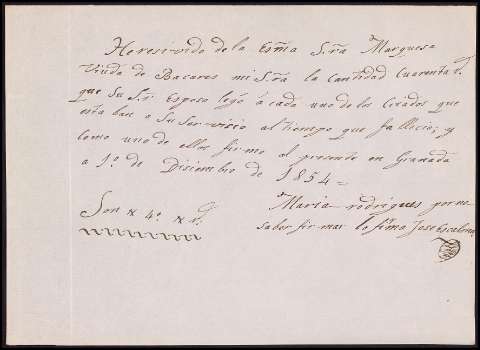 He resivido de la Esma S.ra Marquesa
Viuda de Bacares mi S.ra la Cantidad Cuarenta r.
que Su S.r Esposo legó á cada uno de los Criados que
estaban á Su Servicio al tiempo que fallició; y
Como uno de ellos firmo el presente en Granada
a 1º de Disiembre de 1854=
Son # 4º # r.s
Maria rodrigues por no
saber firmar lo firma José Escalona